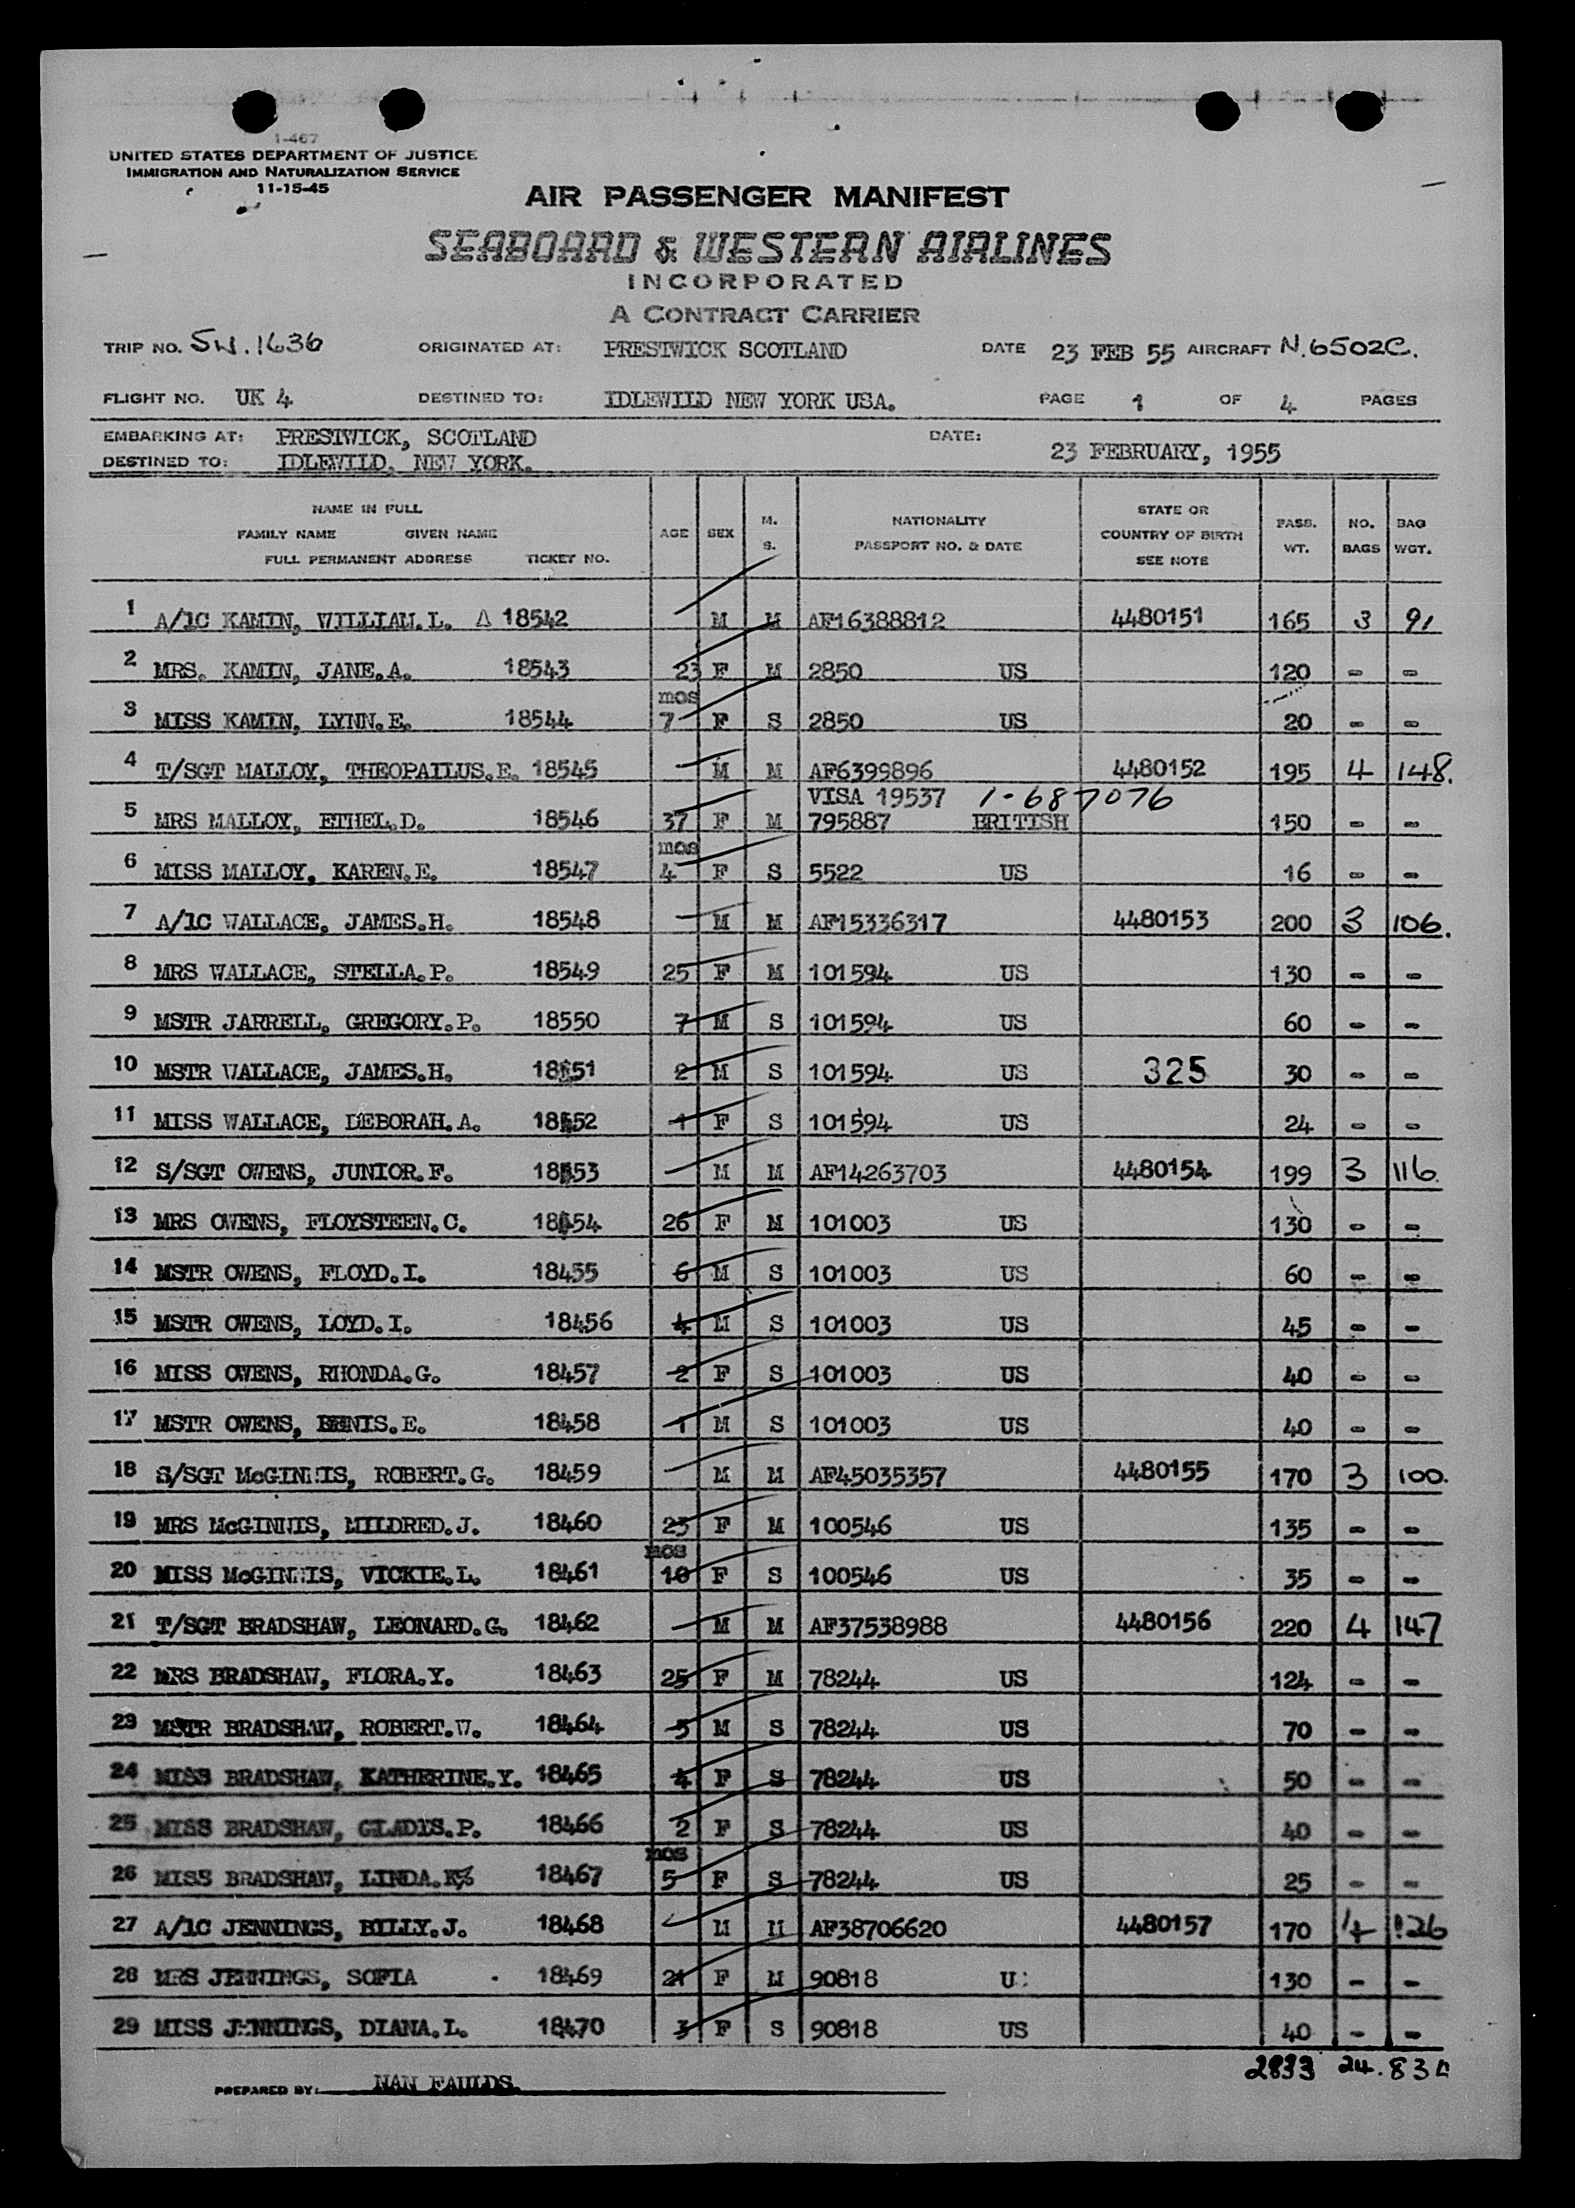 1-467
UNITED STATES DEPARTMENT OF JUSTICE
IMMIGRATION AND NATURALIZATION SERVICE
11-15-45
AIR PASSENGER MANIFEST
SEABOARD & WESTERN AIRLINES
INCORPORATED
A CONTRACT CARRIER
TRIP NO. SW.1636 ORIGINATED AT: PRESTWICK SCOTLAND DATE 23 FEB 55 AIRCRAFT N.6502C.
FLIGHT NO. UK 4 DESTINED TO: IDLEWILD NEW YORK USA. PAGE 1 OF 4 PAGES
EMBARKING AT: PRESTWICK, SCOTLAND DATE: 23 FEBRUARY, 1955
DESTINED TO: IDLEWILD, NEW YORK.
NAME IN FULL
FAMILY NAME GIVEN NAME
FULL PERMANENT ADDRESS TICKET NO. AGE SEX M. S. NATIONALITY PASSPORT NO. & DATE STATE OR COUNTRY OF BIRTH SEE NOTE PASS. WT. NO. BAGS BAG WGT.
1 A/1C KAMIN, WILLIAM.L. Δ 18542 M M AF16388812 4480151 165 3 91
2 MRS. KAMIN, JANE.A. 18543 23 F M 2850 US 120 - -
3 MISS KAMIN, LYNN.E. 18544 mos 7 F S 2850 US 20 - -
4 T/SGT MALLOY, THEOPAILUS.E. 18545 M M AF6399896 4480152 195 4 148.
VISA 19537 1-687076
5 MRS MALLOY, ETHEL.D. 18546 37 F M 795887 BRITISH 150 - -
6 MISS MALLOY, KAREN.E. 18547 mos 4 F S 5522 US 16 - -
7 A/1C WALLACE, JAMES.H. 18548 M M AF15336317 4480153 200 3 106.
8 MRS WALLACE, STELLA.P. 18549 25 F M 101594 US 130 - -
9 MSTR JARRELL, GREGORY.P. 18550 7 M S 101594 US 60 - -
10 MSTR WALLACE, JAMES.H. 18551 2 M S 101594 US 325 30 - -
11 MISS WALLACE, DEBORAH.A. 18552 1 F S 101594 US 24 - -
12 S/SGT OWENS, JUNIOR.F. 18553 M M AF14263703 4480154 199 3 116.
13 MRS OWENS, FLOYSTEEN.C. 18454 26 F M 101003 US 130 - -
14 MSTR OWENS, FLOYD.I. 18455 6 M S 101003 US 60 - -
15 MSTR OWENS, LOYD.I. 18456 4 M S 101003 US 45 - -
16 MISS OWENS, RHONDA.G. 18457 2 F S 101003 US 40 - -
17 MSTR OWENS, 18458 1 M S 101003 US 40 - -
18 S/SGT McGINNIS, ROBERT.G. 18459 M M AF45035357 4480155 170 3 100.
19 MRS McGINNIS, MILDRED.J. 18460 23 F M 100546 US 135 - -
20 MISS McGINNIS, VICKIE.L. 18461 mos 10 F S 100546 US 35 - -
21 T/SGT BRADSHAW, LEONARD.G. 18462 M M AF37538988 4480156 220 4 147
22 MRS BRADSHAW, FLORA.Y. 18463 25 F M 78244 US 124 - -
23 MSTR BRADSHAW, ROBERT.W. 18464 5 M S 78244 US 70 - -
24 MISS BRADSHAW, KATHERINE.Y. 18465 4 F S 78244 US 50 - -
25 MISS BRADSHAW, GLADYS.P. 18466 2 F S 78244 US 40 - -
26 MISS BRADSHAW, LINDA. 18467 mos 5 F S 78244 US 25 - -
27 A/1C JENNINGS, BILLY.J. 18468 M M AF38706620 4480157 170 4 126
28 MRS JENNINGS, SOFIA 18469 21 F M 90818 130 - -
29 MISS JENNINGS, DIANA.L. 18470 3 F S 90818 US 40 - -
2833 24. 834
PREPARED BY: NAN FAULDS.